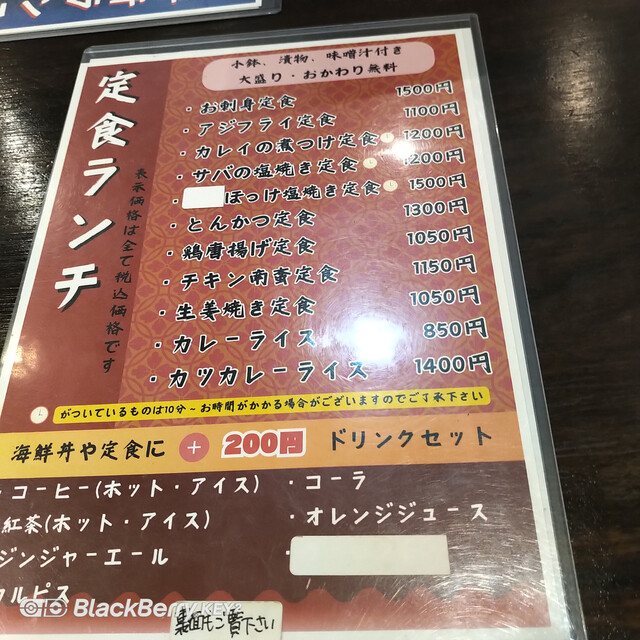 小鉢、漬物、味噌汁付き
大盛り・おかわり無料
定食ランチ
表示価格は全て税込価格です
・お刺身定食 1500円
・アジフライ定食 1100円
・カレイの煮つけ定食 1200円
・サバの塩焼き定食 1200円
・ほっけ塩焼き定食 1500円
・とんかつ定食 1300円
・鶏唐揚げ定食 1050円
・チキン南蛮定食 1150円
・生姜焼き定食 1050円
・カレーライス 850円
・カツカレーライス 1400円
がついているものは10分~お時間がかかる場合がございますのでご了承下さい
海鮮丼や定食に + 200円 ドリンクセット
・コーヒー(ホット・アイス) ・コーラ
紅茶(ホット・アイス) ・オレンジジュース
ジンジャーエール ・
カルピス
BlackBerry KEY²
裏面もご覧下さい